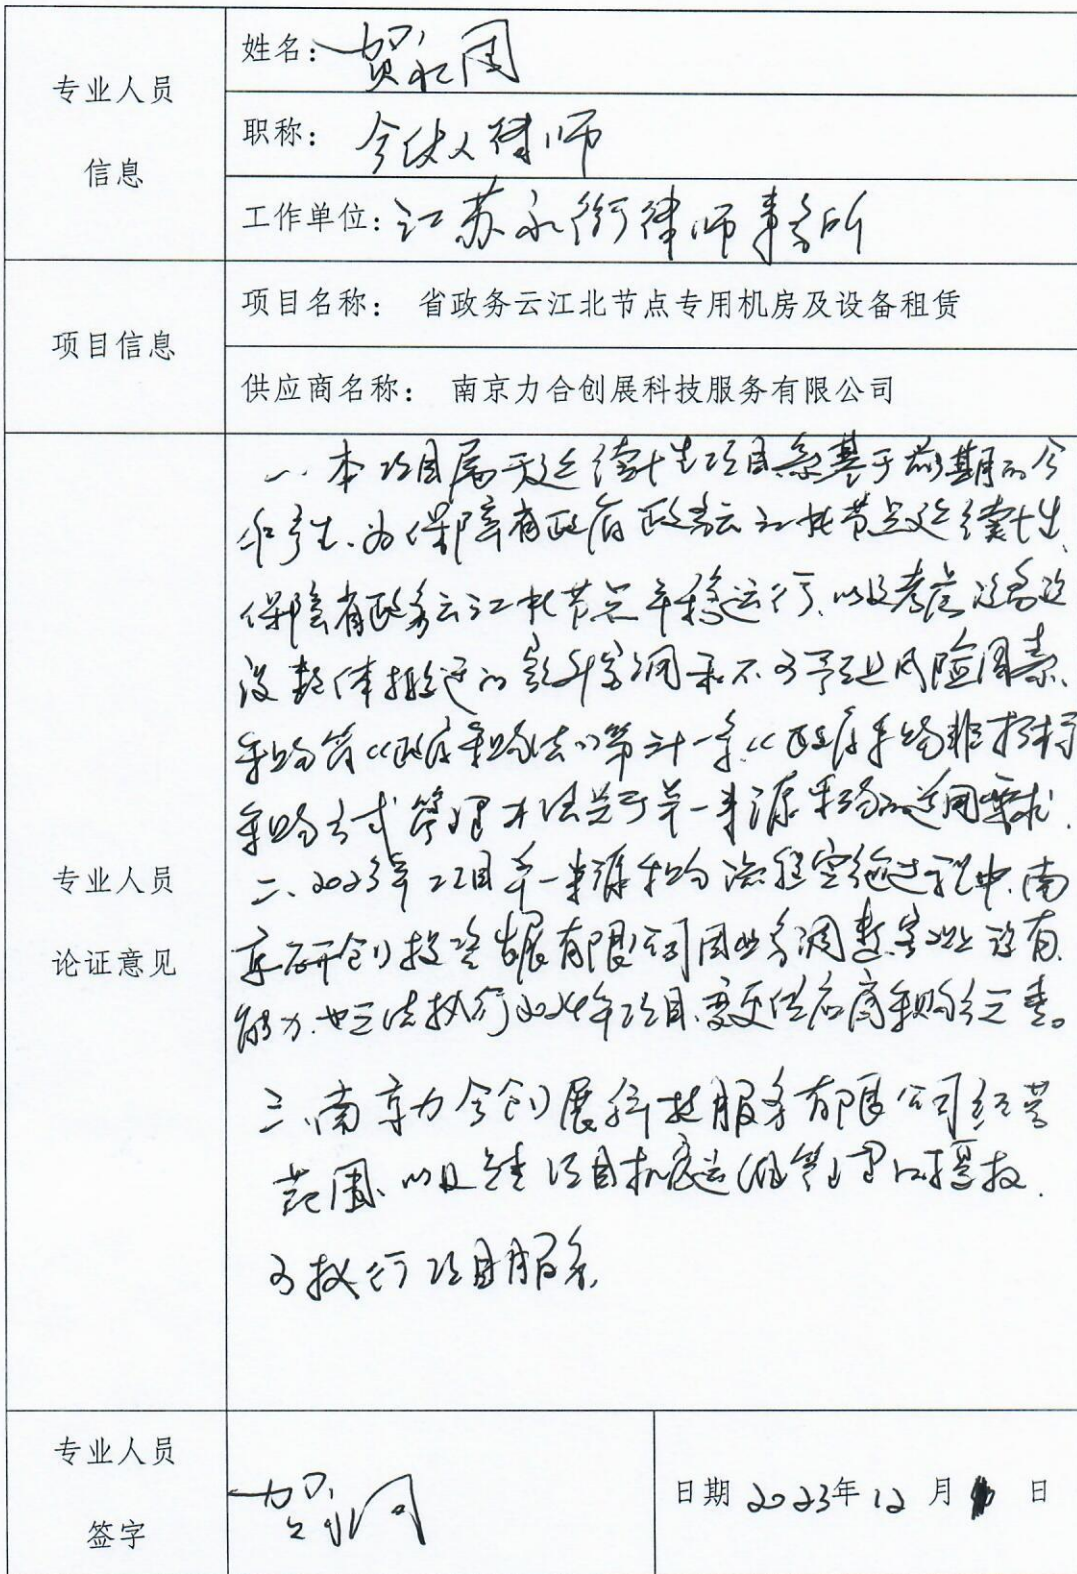 专业人员
信息
姓名：贺永国
职称：合伙人律师
工作单位：江苏永衡律师事务所
项目信息
项目名称： 省政务云江北节点专用机房及设备租赁
供应商名称： 南京力合创展科技服务有限公司
专业人员
论证意见
一、本项目属于延续性项目，系基于前期的合
为保障省政府政务云江北节点延续性
保障省政务云江北节点平稳运行，以及考虑
设整体推进的 和不可预见风险因素，
采购符《政府采购法》第三十一条《政府采购非招标
采购方式管理办法关于单一来源采购的适用要求，
二、2023年项目单一来源采购流程实施过程中，南
京研创投资发展有限公司因业务调整 没有
能力，也无法执行2024年项目，变更供应商采购
三、南京力合创展科技服务有限公司经营
范围，以及 项目机房运维管理的授权，
可执行项目服务，
专业人员
签字
贺永国
日期 2023年 12 月 日